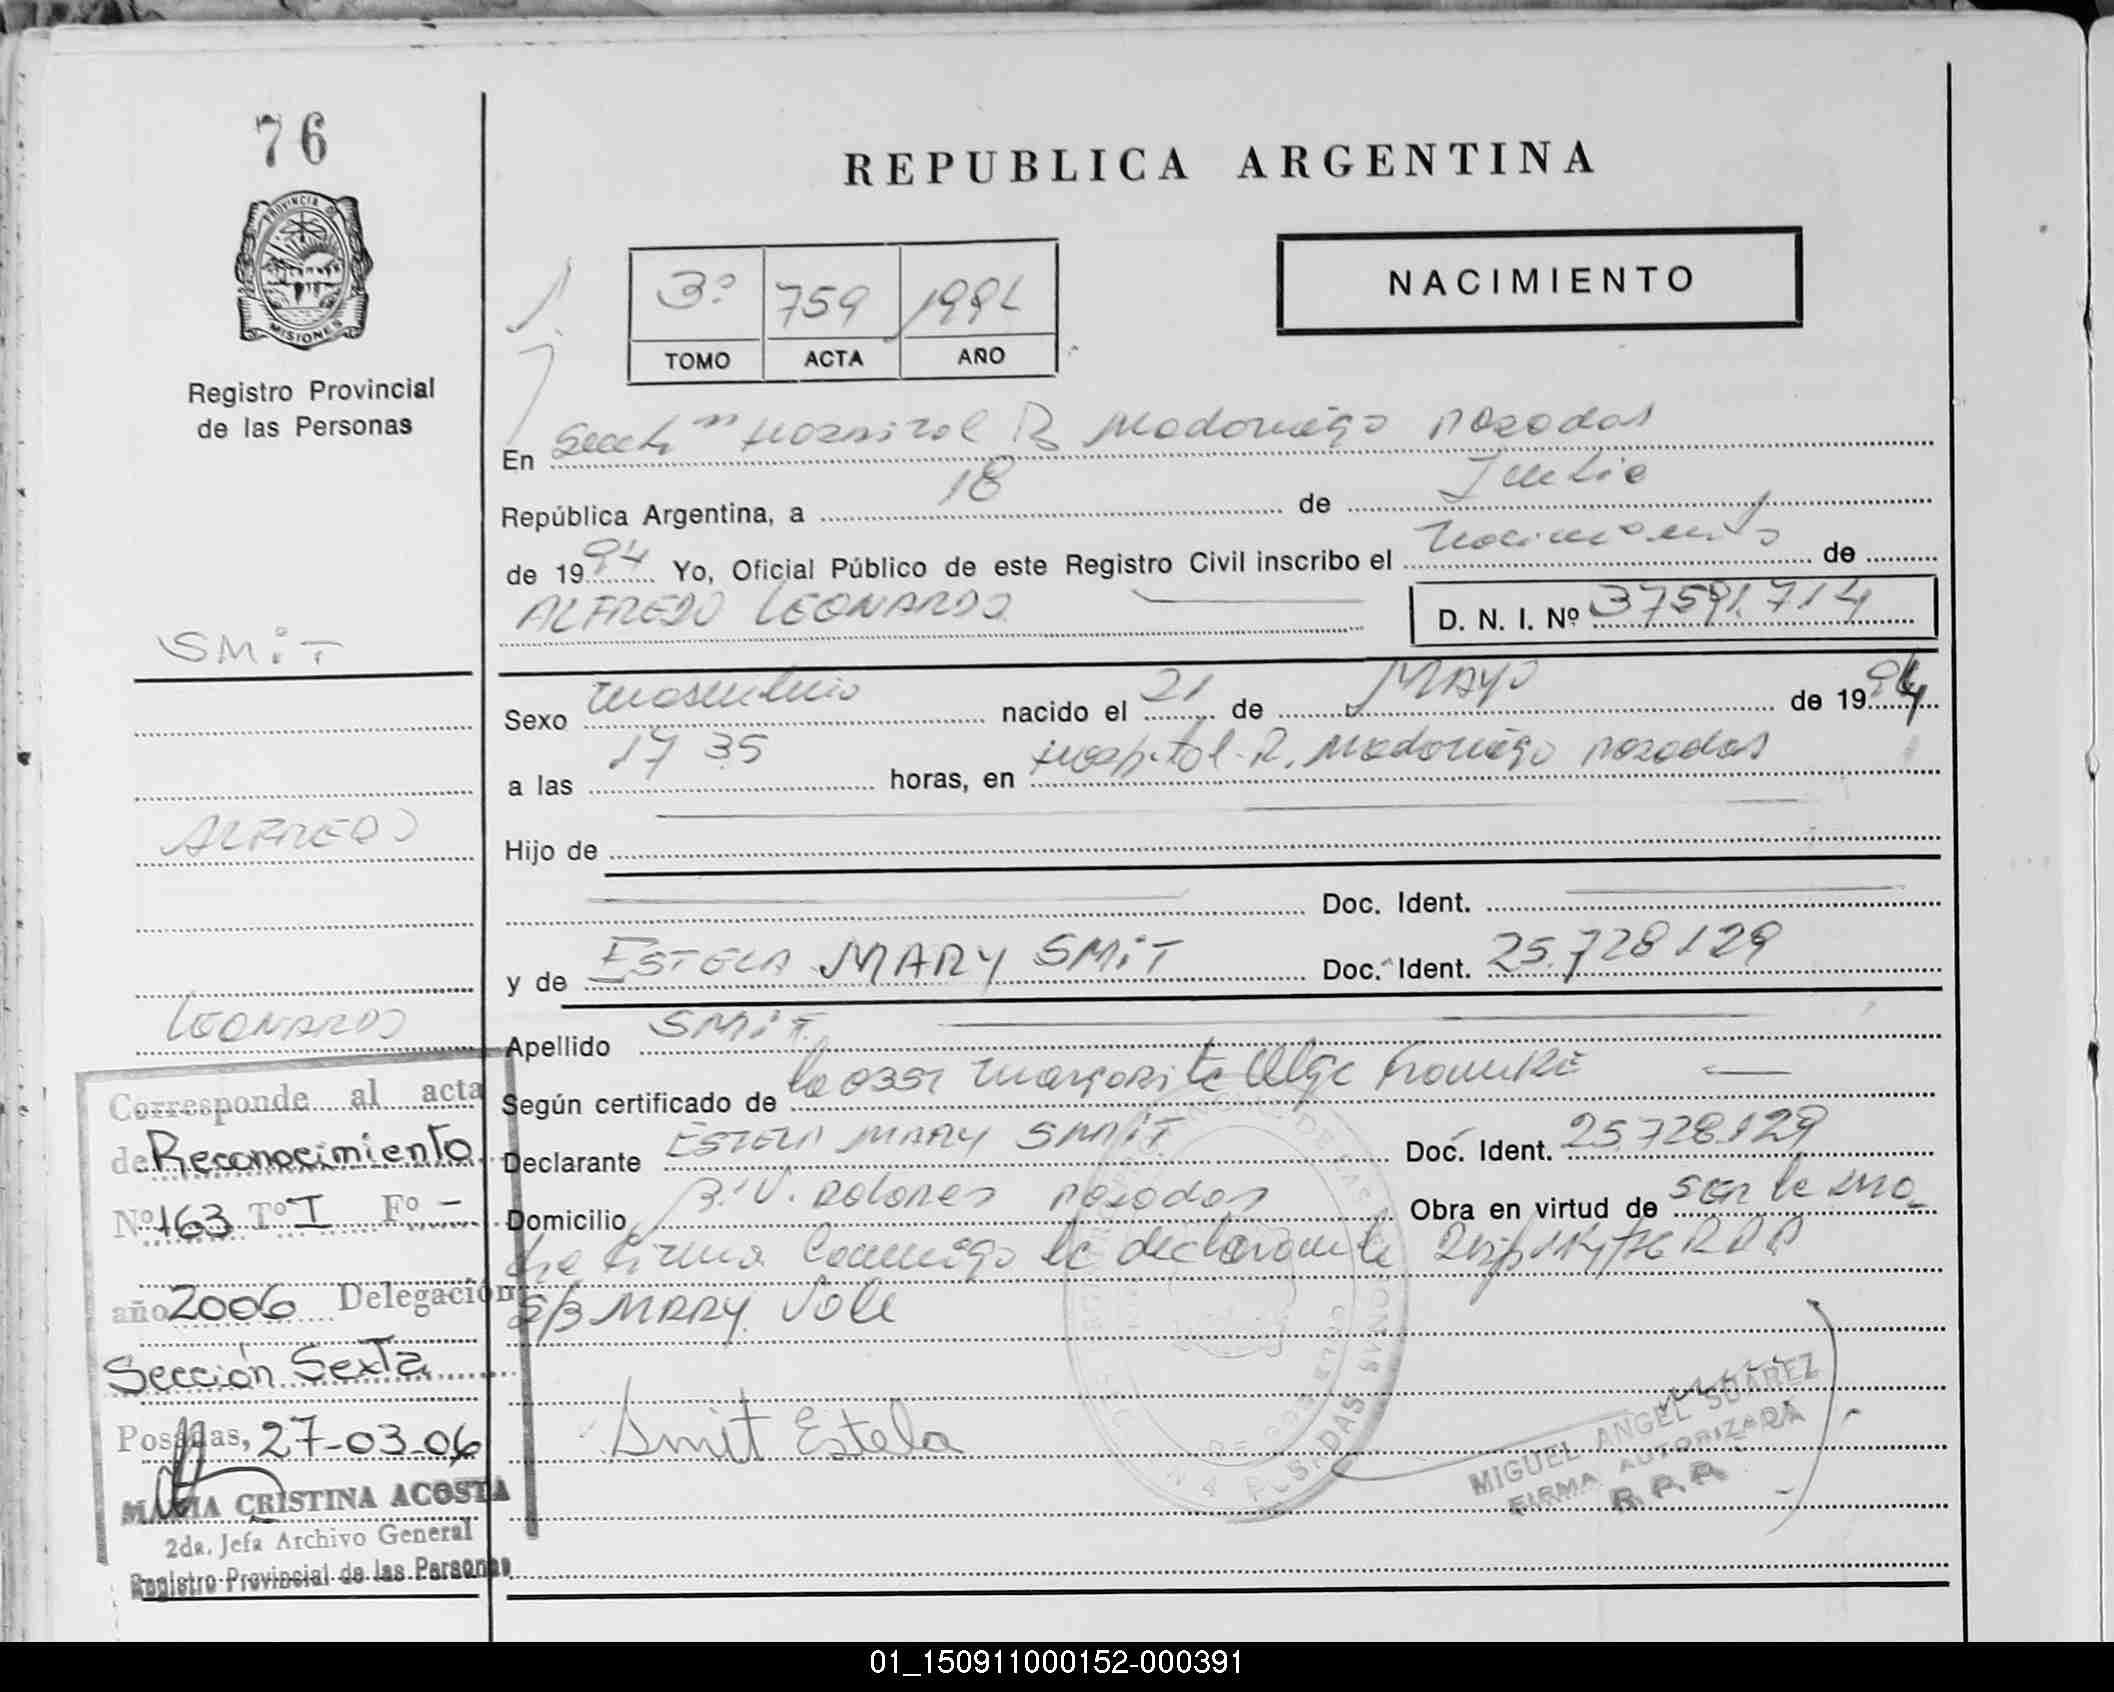 76
PROVINCIA DE
MISIONES
Registro Provincial
de las Personas
REPUBLICA ARGENTINA
3º 759 1994
TOMO ACTA AÑO
NACIMIENTO
En Secc Hospital R Madariaga Posadas
República Argentina, a 18 de Julio
de 1994 Yo, Oficial Público de este Registro Civil inscribo el Nacimiento de
ALFREDO LEONARDO D. N. I. Nº 37591.714
SMiT
Sexo masculino nacido el 21 de MAYO de 1994
a las 17 35 horas, en Hospital R. Madariaga Posadas
ALFREDO
Hijo de
Doc. Ident.
y de ESTELA MARY SMiT Doc. Ident. 25.728129
LEONARDO
Apellido SMiT
Según certificado de la Margarita Olga
Declarante ESTELA MARY SMiT Doc. Ident. 25.728.129
Domicilio Bº V. Dolores Posadas Obra en virtud de ser la ma
dre firma conmigo la declarante
S/B MARY Vale
Smit Estela
MIGUEL ANGEL SUAREZ
FIRMA AUTORIZADA
R.P.P.
Corresponde al acta
de Reconocimiento
Nº 163 Tº I Fº -
año 2006 Delegación
Sección Sexta
Posadas, 27-03-06
MARIA CRISTINA ACOSTA
2da. Jefa Archivo General
Registro Provincial de las Personas
01_150911000152-000391